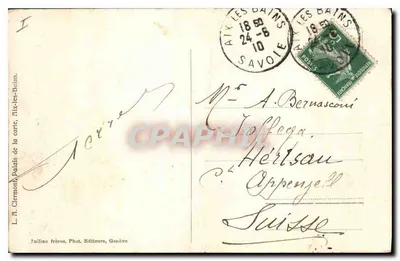 I
AIX LES BAINS
18 50
24-6
10
SAVOIE
AIX LES BAINS
18 50
10
Mr A. Bernasconi
Zoffega
Hérisau
Appenzell
Suisse
CPARAMA
L. A. Clermont, Palais de la carte, Aix-les-Bains.
Jullien frères, Phot. Editeurs, Genève